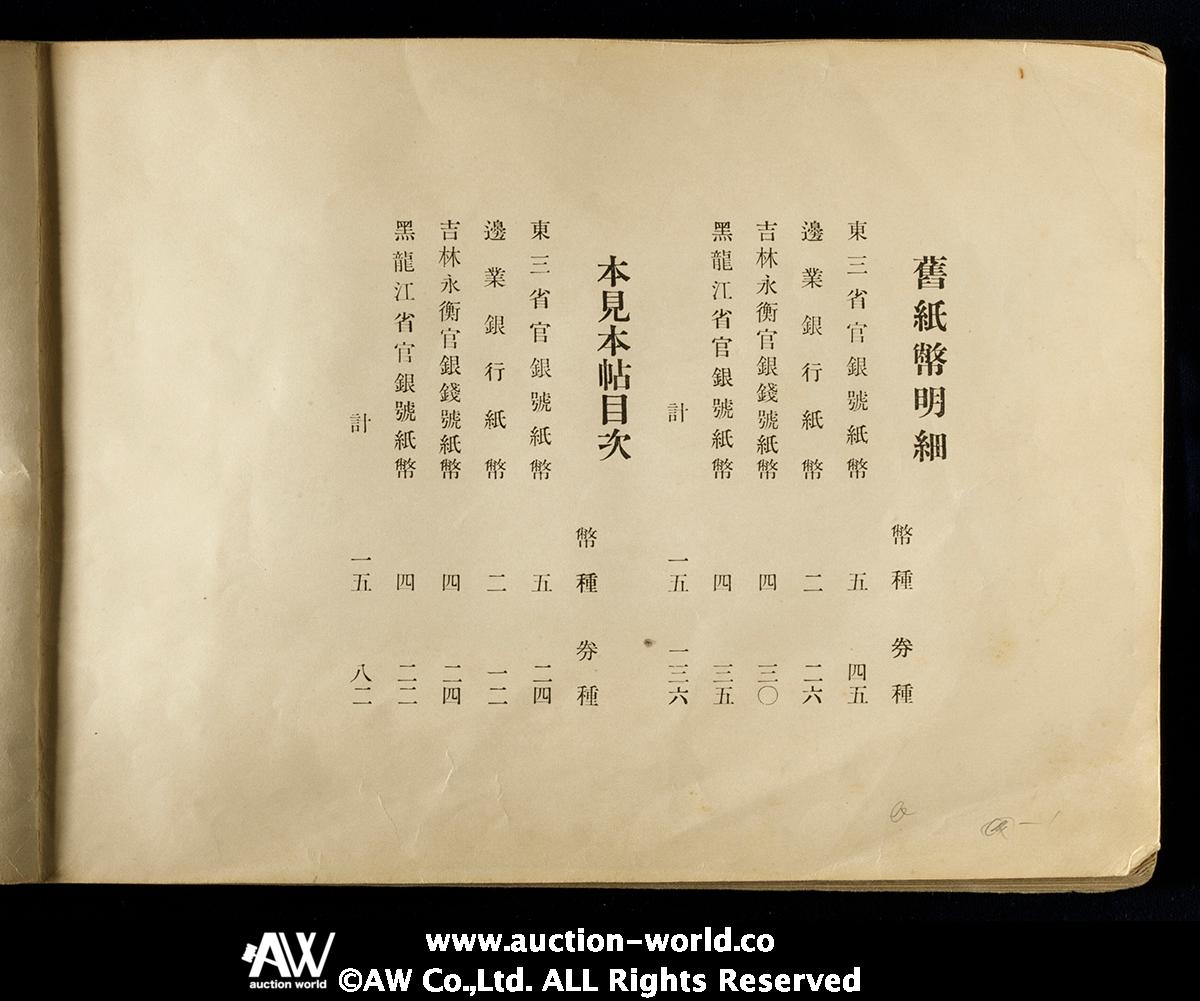 舊紙幣明細
幣種 券種
東三省官銀號紙幣 五 四五
邊業銀行紙幣 二 二六
吉林永衡官銀錢號紙幣 四 三〇
黑龍江省官銀號紙幣 四 三五
計 一五 一三六
本見本帖目次
幣種 券種
東三省官銀號紙幣 五 二四
邊業銀行紙幣 二 一二
吉林永衡官銀錢號紙幣 四 二四
黑龍江省官銀號紙幣 四 二二
計 一五 八二
AW
auction world
www.auction-world.co
©AW Co.,Ltd. ALL Rights Reserved